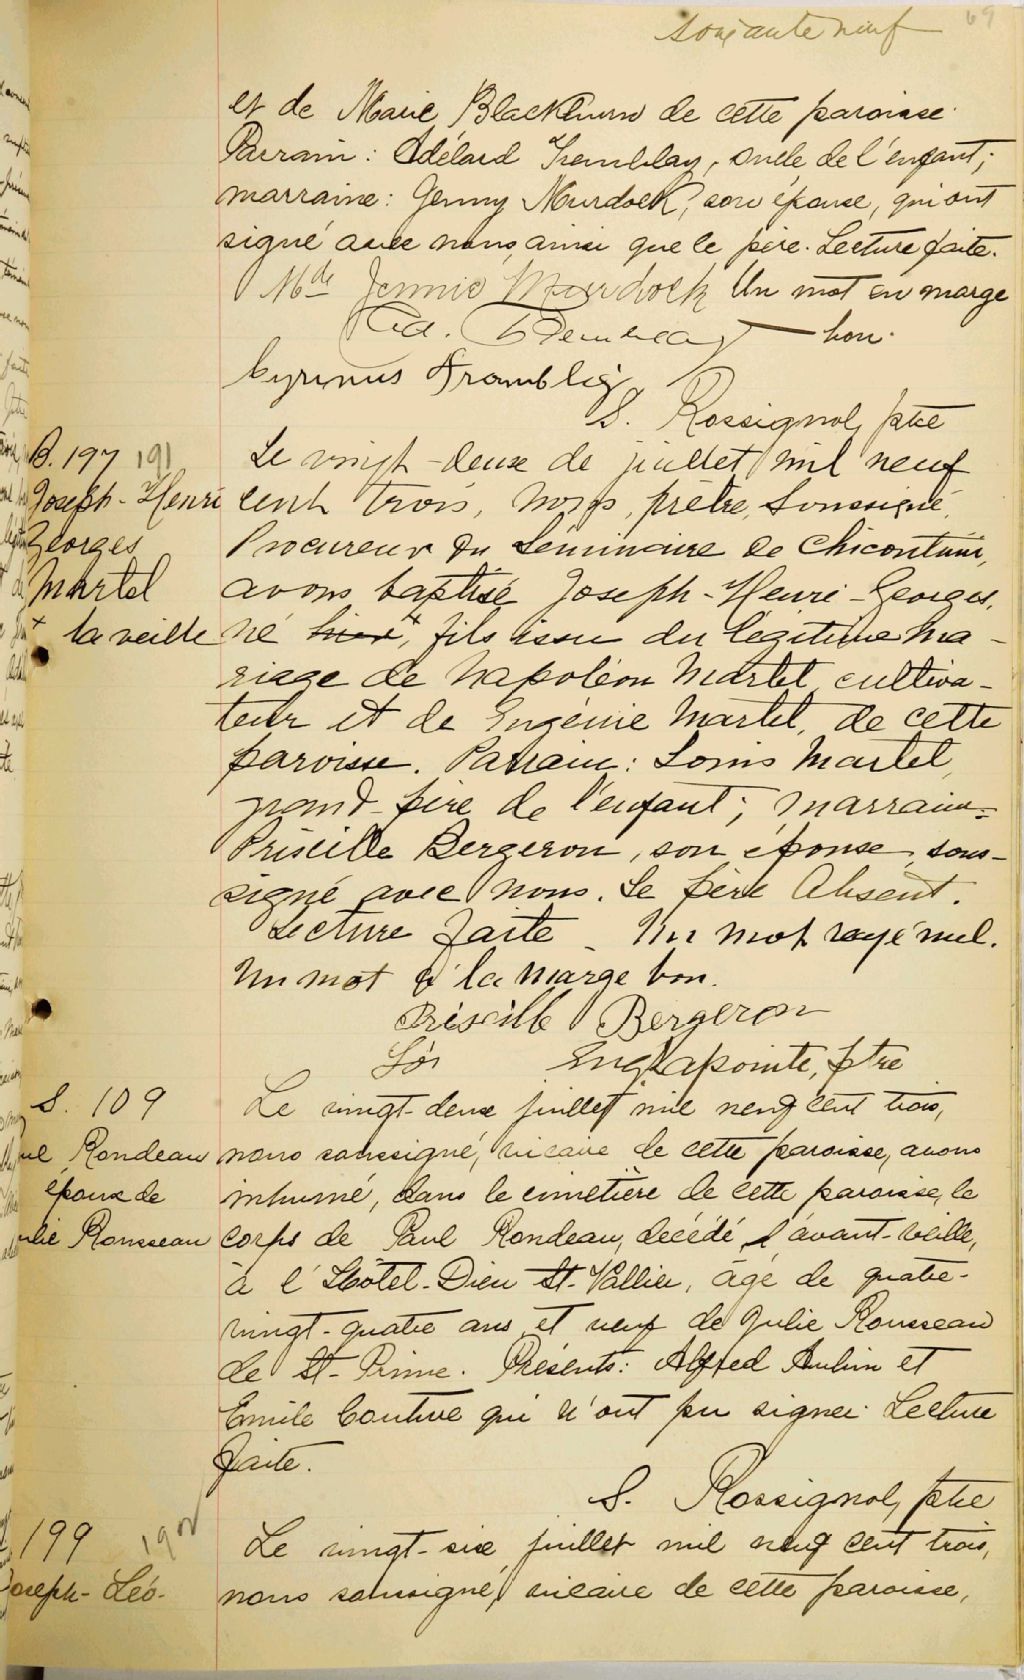 soixante neuf 69
et de Marie Blackburn de cette paroisse.
Parrain: Adélard Tremblay, oncle de l'enfant;
marraine: Jenny Murdock, son épouse, qui ont
signé avec nous, ainsi que le père. Lecture faite.
Mde Jennie Murdock Un mot en marge
Ad. Tremblay bon.
Cyrinus Trambley
S. Rossignol, ptre
B. 197 191
Joseph-Henri
Georges
Martel
+ la veille
Le vingt-deux de juillet mil neuf
cent trois, nous, prêtre, soussigné,
Procureur du Séminaire de Chicoutimi,
avons baptisé Joseph-Henri-Georges,
né hier+, fils issu du légitime ma-
riage de Napoléon Martel, cultiva-
teur et de Eugénie Martel, de cette
paroisse. Parrain: Louis Martel,
grand-père de l'enfant; marraine:
Priscille Bergeron, son épouse, sous-
signé avec nous. Le père absent.
Lecture faite - Un mot rayé nul.
Un mot à la marge bon.
Priscille Bergeron
Eug Lapointe, ptre
S. 109
Rondeau
époux de
Rousseau
Le vingt-deux juillet mil neuf cent trois,
nous soussigné, vicaire de cette paroisse, avons
inhumé, dans le cimetière de cette paroisse, le
corps de Paul Rondeau, décédé l'avant-veille,
à l'Hôtel-Dieu St-Vallier, âgé de quatre-
vingt-quatre ans et veuf de Julie Rousseau
de St-Prime. Présents: Alfred Aubin et
Emile Couture qui n'ont pu signer. Lecture
faite.
S. Rossignol, ptre
199 192
Joseph-Léo-
Le vingt-six juillet mil neuf cent trois,
nous soussigné, vicaire de cette paroisse,